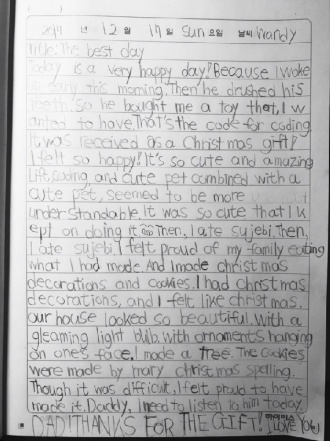 2017 년 12 월 17 일 Sun 요일 날씨 Windy
Title: The best day
Today is a very happy day! Because I woke
early this morning. Then he brushed his
teeth. So he bought me a toy that, I w
anted to have. That's the code for coding.
It was received as a Christmas gift!
I felt so happy! It's so cute and amazing
Lift, coding and cute pet combined with a
cute pet, seemed to be more
understandable. It was so cute that I k
ept on doing it Then, I ate sujebi. Then,
I ate sujebi. I felt proud of my family eating
what I had made. And I made christmas
decorations and cookies. I had christmas
decorations, and I felt like christmas.
our house looked so beautiful with a
gleaming light bulb with ornaments hanging
on ones face. I made a tree. The cookies
were made by mary christmas spelling.
Though it was difficult, I felt proud to have
made it. Daddy, I need to listen to him today.
DAD! THANKS FOR THE GIFT! LOVE